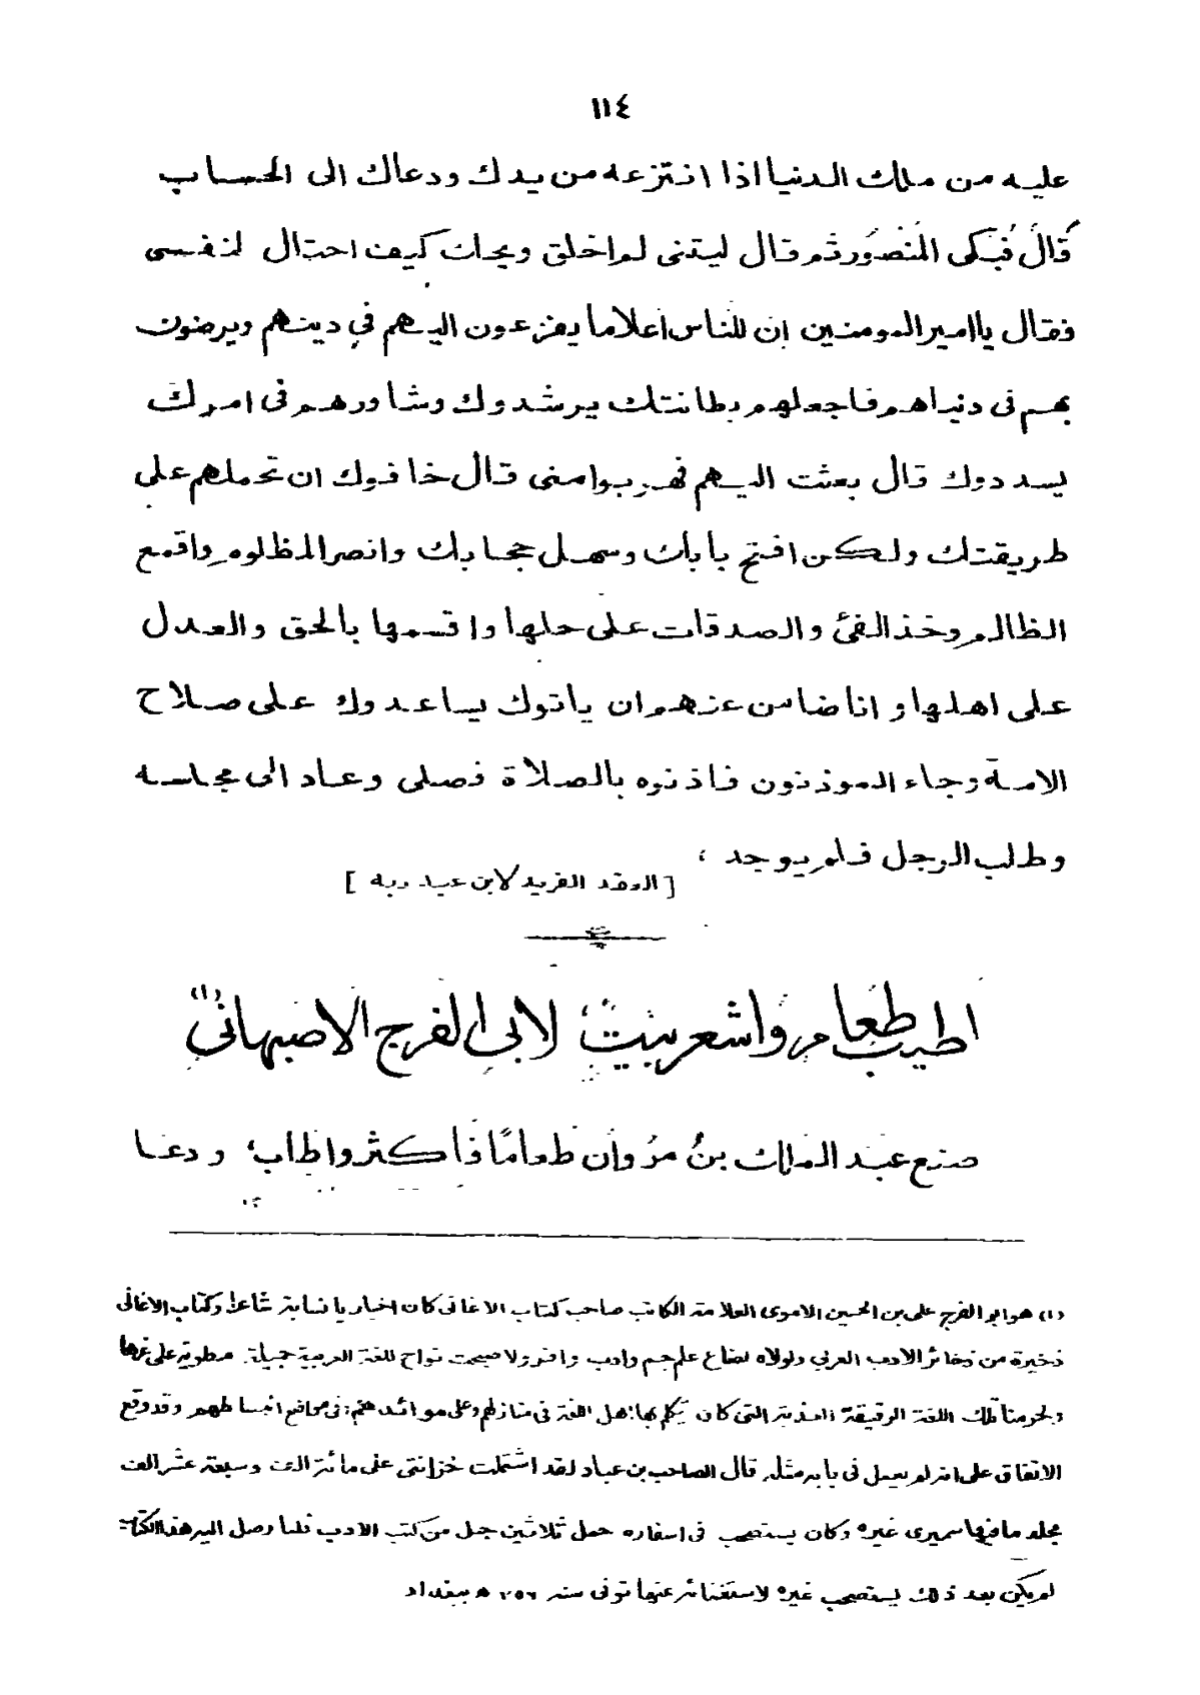 ١١٤
عليه من ملك الدنيا اذا انتزعه من يدك ودعاك الى الحساب
قَالَ فَبَكى المَنْصُور ثم قال ليتنى لم اخلق ويحك كيف احتال لنفسى
فقال يا امير المومنين ان للناس اعلاما يفزعون اليهم في دينهم ويرضون
بهم فى دنياهم فاجعلهم بطانتك يرشدوك وشاورهم فى امرك
يسددوك قال بعثت اليهم فهربوا منى قال خافوك ان تحملهم على
طريقتك ولكن افتح بابك وسهل حجابك وانصر المظلوم واقمع
الظالم وخذ الفئ والصدقات على حلها واقسمها بالحق والعدل
على اهلها وانا ضامن عنهم ان ياتوك يساعدوك على صلاح
الامة وجاء الموذنون فاذنوه بالصلاة فصلى وعاد الى مجلسه
وطلب الرجل فلم يوجد ،
[العقد الفريد لابن عبد ربه]
اطيب طعام واشعر بيت لابى الفرج الاصبهانى (١)
صنع عبد الملك بنُ مَرْوان طعامًا فاكثر واطاب، ودعا
(١) هو ابو الفرج على بن الحسين الاموى العلامة الكاتب صاحب كتاب الاغانى كان اخباريا نسابة شاعرا وكتاب الاغانى
ذخيرة من ذخائر الادب العربي ولولاه لضاع علم جم وادب وافر ولاصبحت نواح للغة العربية جميلة مطوية على غرها
ولحرمنا تلك اللغة الرقيقة العذبة التى كان يتكلم بها اهل اللغة فى منازلهم وعلى موائدهم فى مواضع انبساطهم وقد وقع
الاتفاق على انه لم يعمل فى بابه مثله قال الصاحب بن عباد لقد اشتملت خزانتى على مائة الف وسبعة عشر الف
مجلد ما فيها سميرى غيره وكان يستصحب فى اسفاره حمل ثلاثين جمل من كتب الادب فلما وصل اليه هذا الكتاب
لم يكن بعد ذلك يستصحب غيره لاستغنائه عنها توفى سنه ٣٥٦ ه ببغداد